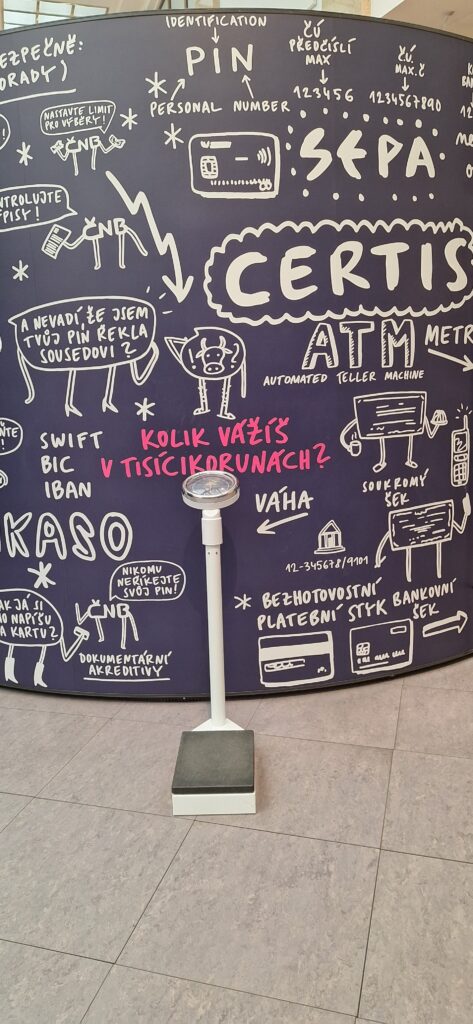 EZPEČNĚ:
ORADY)
IDENTIFICATION
PIN
PERSONAL NUMBER
ČÚ
PŘEDČÍSLÍ
MAX
123456
Č.Ú.
MAX. Č
1234567890
NASTAVTE LIMIT
PRO VÝBĚRY!
ČNB
SEPA
NTROLUJTE
PISY!
ČNB
CERTIS
A NEVADÍ, ŽE JSEM
TVŮJ PIN ŘEKLA
SOUSEDOVI?
ATM
AUTOMATED TELLER MACHINE
METR
SWIFT
BIC
IBAN
KOLIK VÁŽÍŠ
V TISÍCIKORUNÁCH?
VÁHA
SOUKROMÝ
ŠEK
KASO
12-345678/9101
NIKOMU
NEŘÍKEJTE
SVŮJ PIN!
ČNB
AK JÁ SI
O NAPÍŠU
A KARTU?
DOKUMENTÁRNÍ
AKREDITIVY
BEZHOTOVOSTNÍ
PLATEBNÍ STYK
BANKOVNÍ
ŠEK